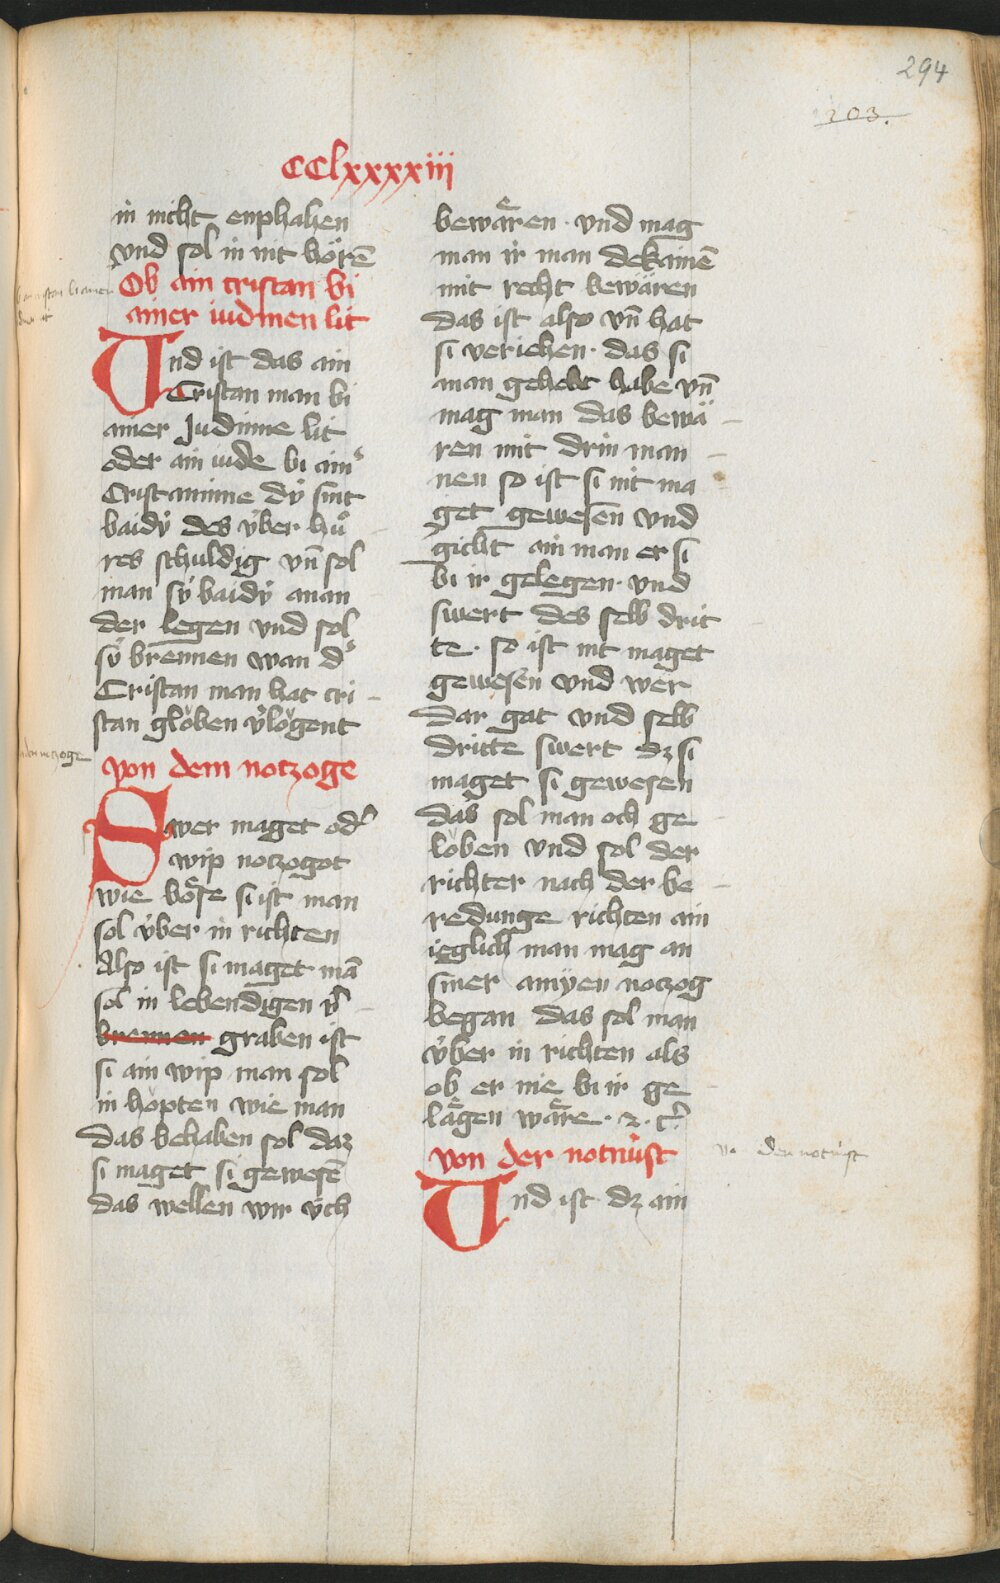 294
203.
CClxxxxiii
in nicht enphahen
vnd sol in nit hörē
Ob ain cristan bi
ainer iudinen lit
Vnd ist das ain
Cristan man bi
ainer Judinne lit
oder ain iude bi ain
Cristaninne dÿ sint
baidÿ des v̈ber hů
res schuldig vn̄ sol
man sÿ baidÿ anan
der legen vnd sol
sÿ brennen wan d
Cristan man hat cri
stan glöben v̈lögent
von dem notzoge
Swer maget od
wip notzogot
wie böse si ist man
sol v̈ber in richten
Also ist si maget mā
sol in lebendigen
brennen graben ist
si ain wip man sol
in höpten wie man
das behaben sol daz
si maget si gewesē
das wellen wir v̈ch
bewären · vnd mag
man ir man dekainē
mit recht bewären
das ist also vn̄ hat
si veriehen · das si
man gehebt habe vn̄
mag man das bewä
ren mit drin man
nen so ist si nit ma
get gewesēn vnd
gicht ain man er si
bi ir gelegen · vnd
swert des selb drit
te · so ist nit maget
gewesen vnd wer
dar gat vnd selb
dritte swert dz si
maget si gewesen
das sol man och ge
löben vnd sol der
richter nach der be
redunge richten ain
ieglich man mag an
siner amÿen notzog
began das sol man
v̈ber in richten als
ob er nie bi ir ge
lägen wäre · ꝛ · c̄
von der notnu̇ft
Vnd ist dz ain